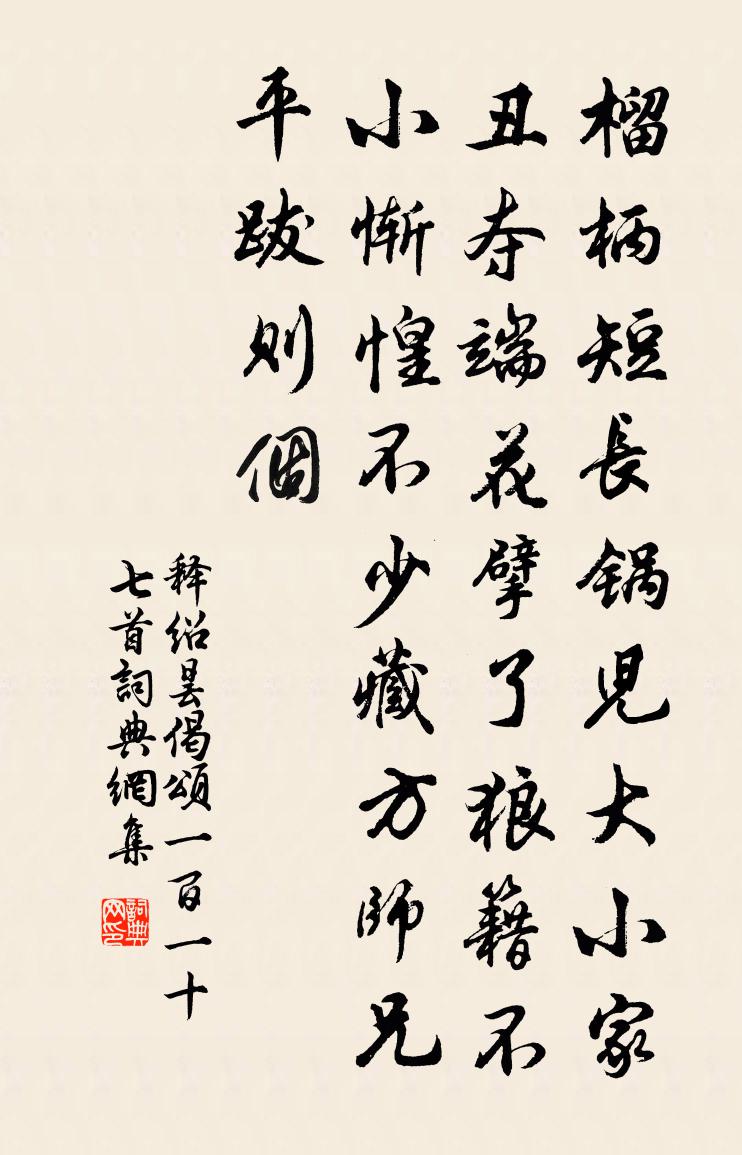 榴柄短長鍋児大小家
丑夺端花擘了狼籍不
小慚惶不少藏方師兄
平跋则個
释绍昙偈頌一百一十
七首詞典網集
詞典网印